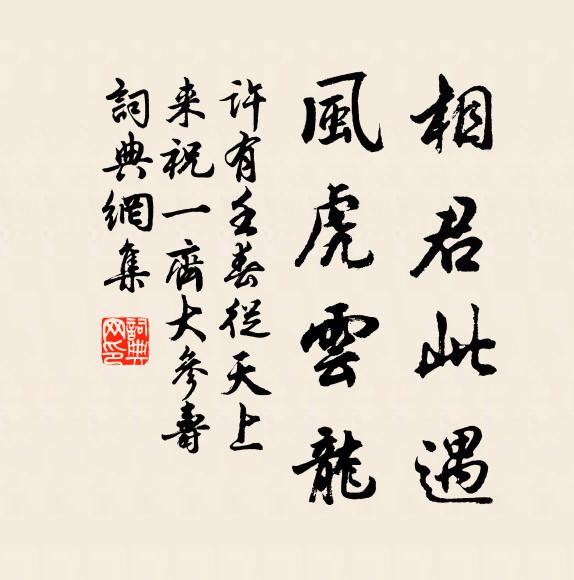 相君此遇
風虎雲龍
許有壬春從天上
来祝一齊大參壽
詞典網集
詞典网印